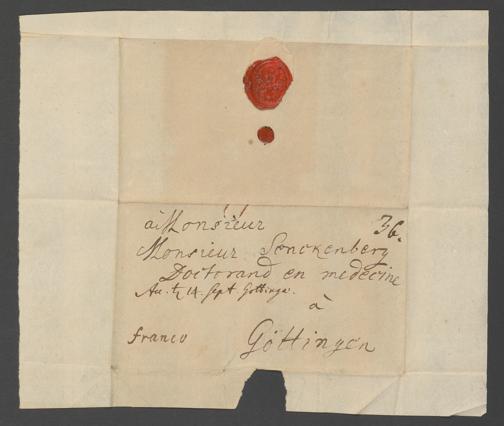 à Monsieur
36.
Monsieur Senckenberg
Doctorand en medecine
14. Sept Gottinga.
à
franco
Göttingen